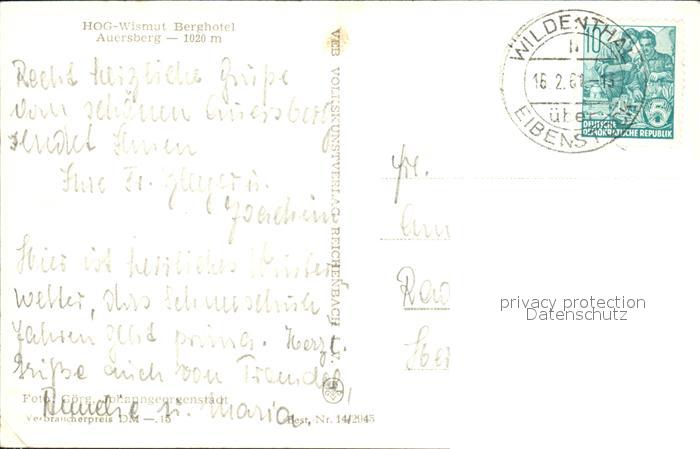 HOG-Wismut Berghotel
Auersberg — 1020 m
Recht herzliche Grüße
vom schönen Auersberg
sendet Ihnen
Ihre Fr. u.
Joachim
Hier ist herrliches Winter
wetter, das Schneeschuh
fahren geht prima. Herzl.
Grüße auch von
u. Maria.
Foto: Görg, Johanngeorgenstadt
Verbraucherpreis DM —.15
Best. Nr. 14/2045
VEB VOLKSKUNSTVERLAG REICHENBACH I. V.
WILDENTHAL
16.2.61
über
EIBENSTOCK
10
5
DEUTSCHE
DEMOKRATISCHE REPUBLIK
Fr.
privacy protection
Datenschutz